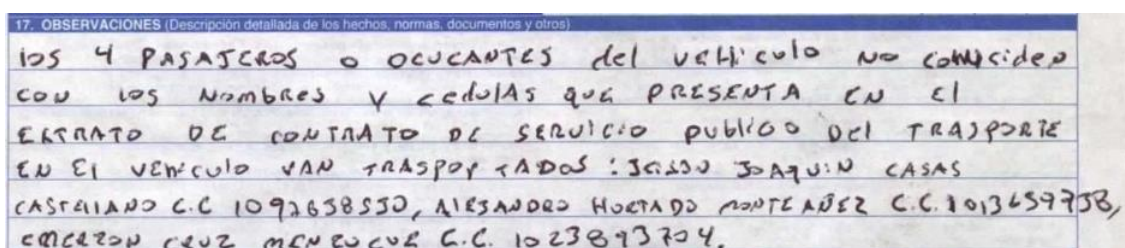 17. OBSERVACIONES (Descripción detallada de los hechos, normas, documentos y otros)
los 4 PASAJEROS o OCUCANTES del vehiculo NO coinciden
con los Nombres y cedulas que PRESENTA EN El
EXTRATO DE CONTRATO DE SERVICIO publico Del TRASPORTE
EN El vehiculo VAN TRASPORTADOS: JOAQUIN CASAS
CASTELLANO C.C 1092638530, ALEJANDRO HURTADO C.C. 1013659738,
CRUZ C.C. 1023893704.